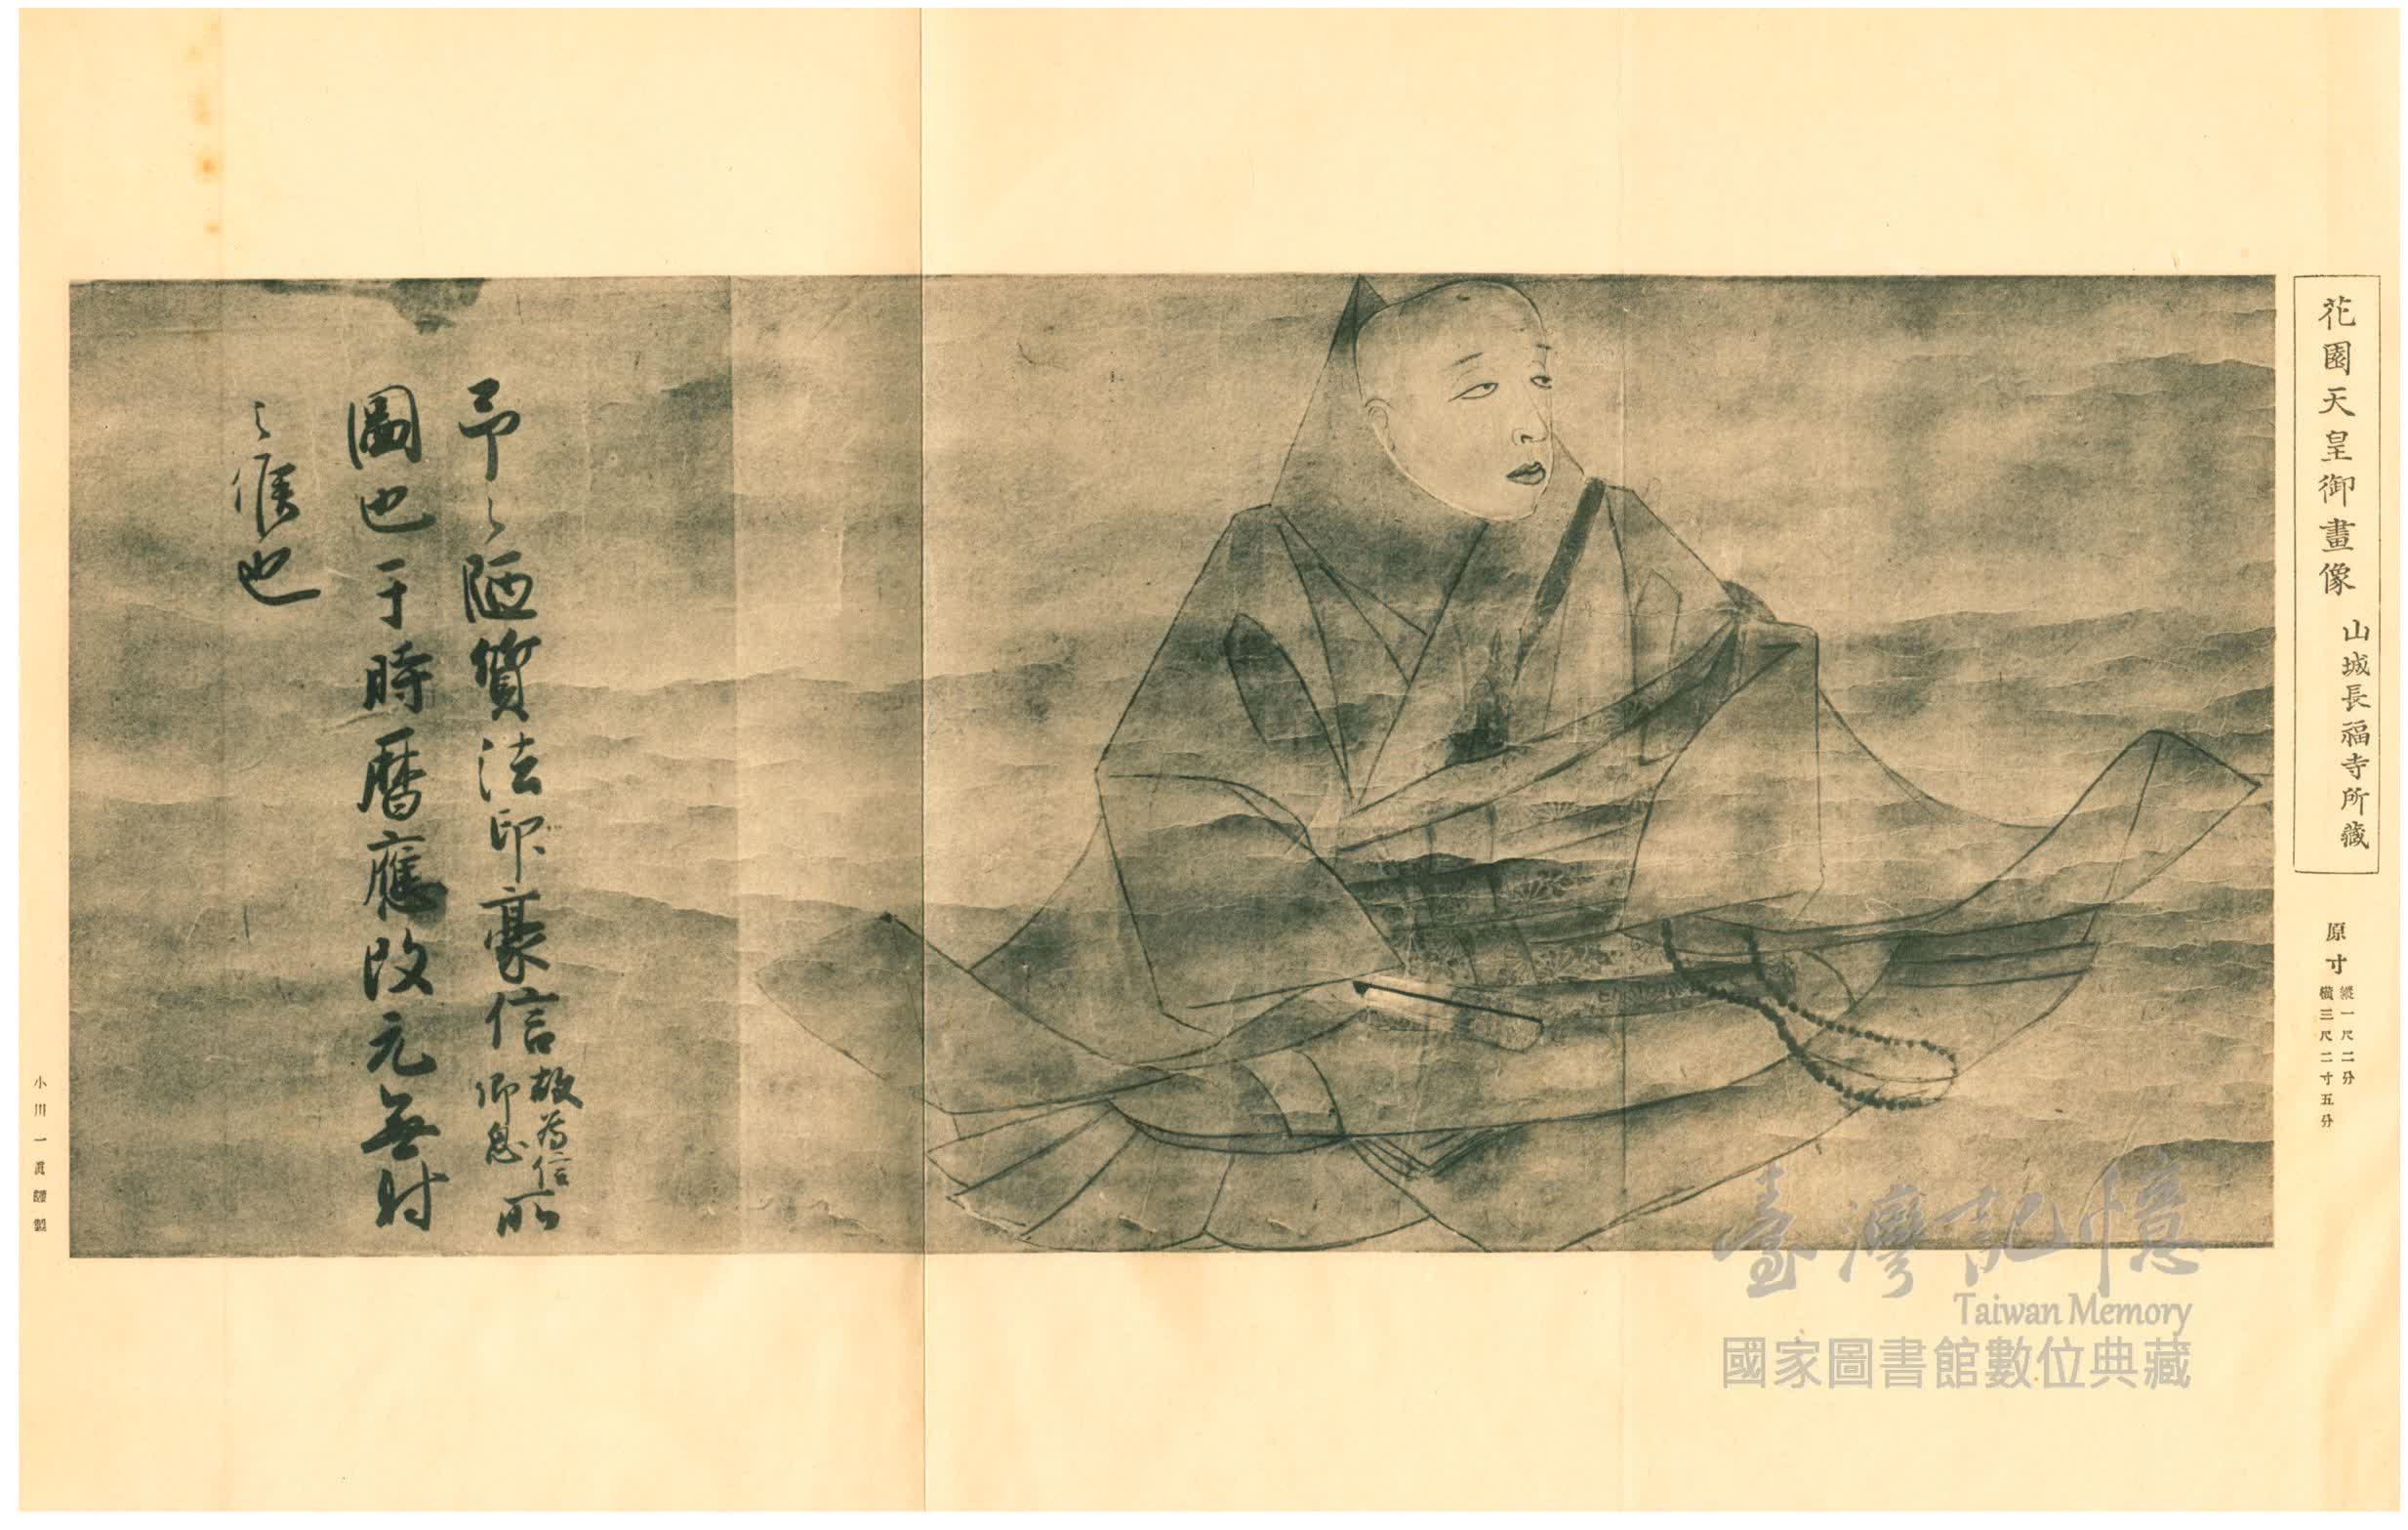 花園天皇御畫像 山城長福寺所藏
原寸 縱一尺二分 橫三尺二寸五分
予之陋質法印豪信故為信卿息所
圖也于時曆應改元無射
之候也
小川一眞謹製
臺灣記憶
Taiwan Memory
國家圖書館數位典藏